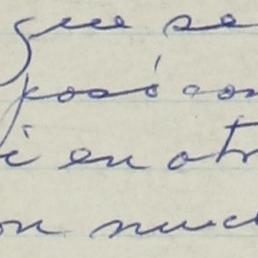 que se
posé con
é en otr
on much